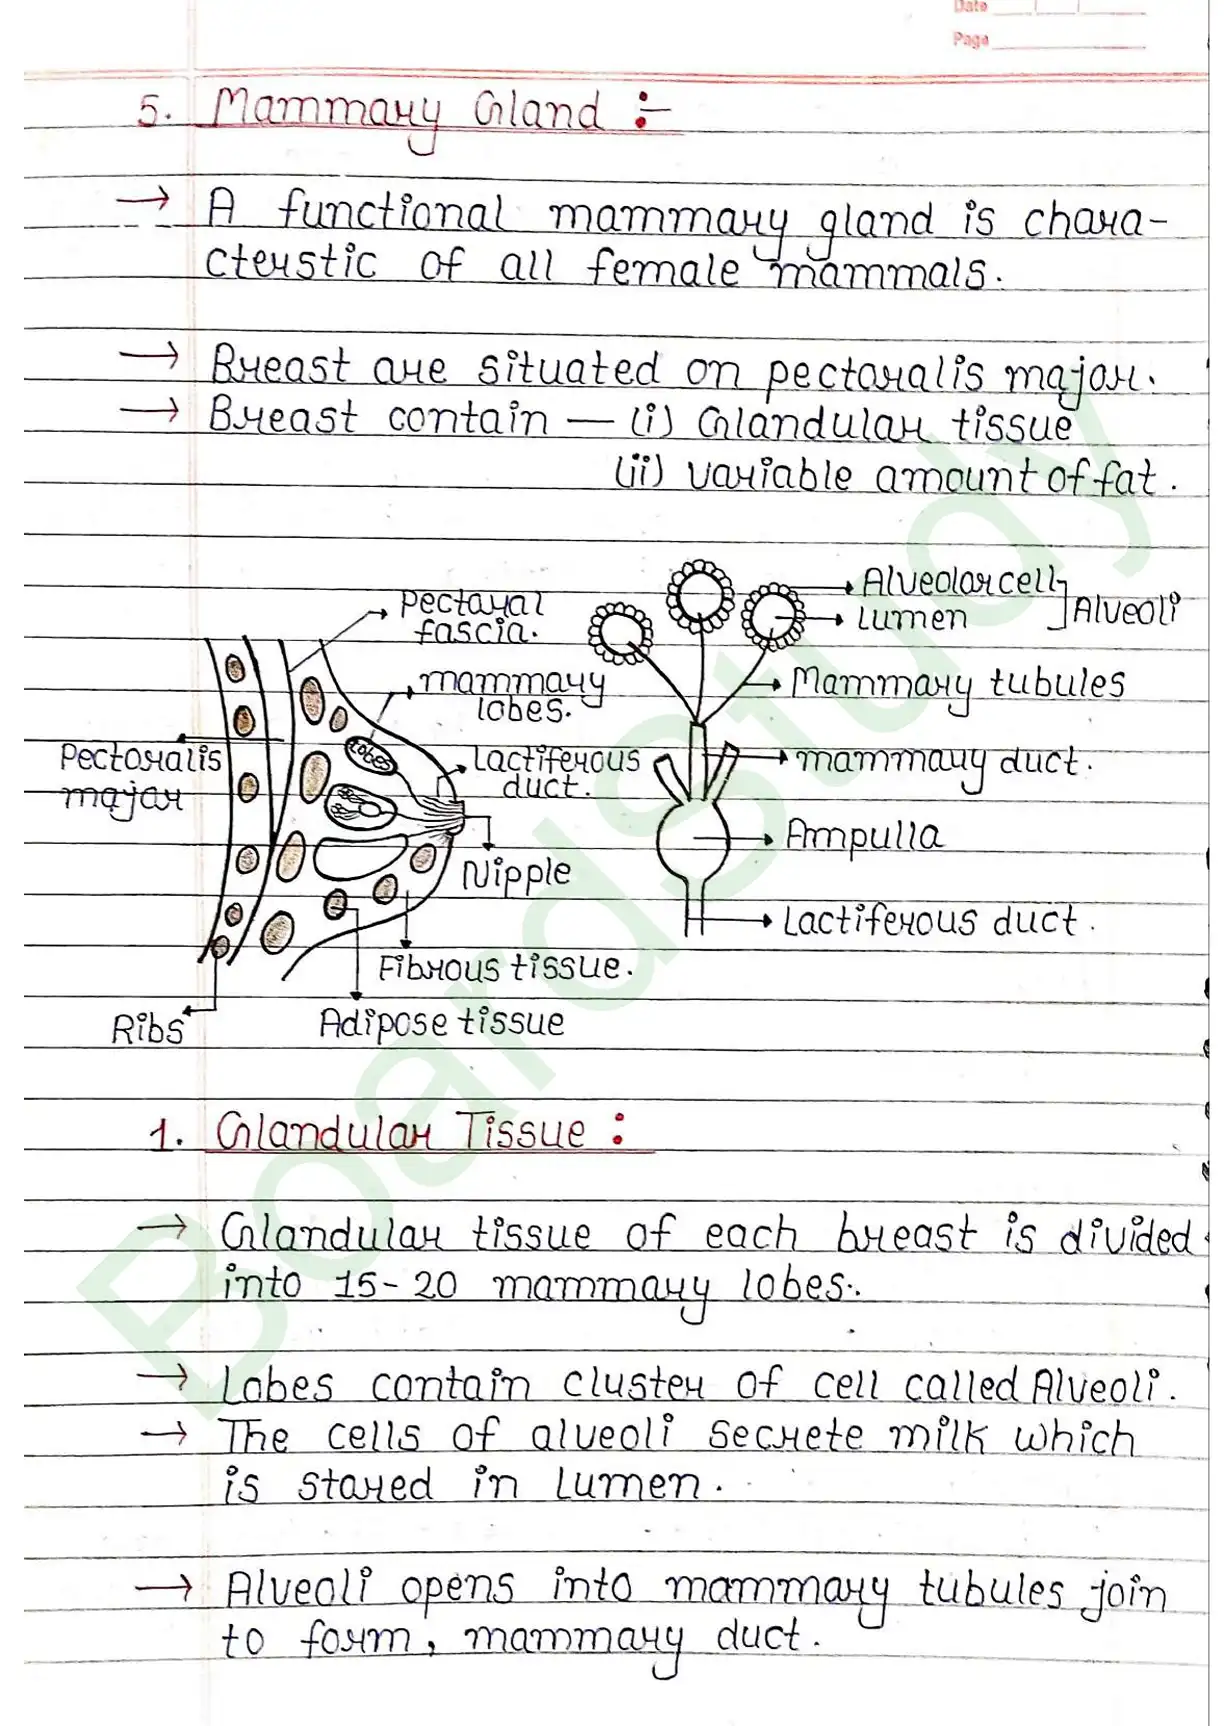 Date
Page
5. Mammary Gland :-
→ A functional mammary gland is chara-
cterstic of all female mammals.
→ Breast are situated on pectoralis major.
→ Breast contain — (i) Glandular tissue
(ii) variable amount of fat.
Pectoral
fascia.
mammary
lobes.
lobes
Lactiferous
duct.
Pectoralis
major
Nipple
Fibrous tissue.
Adipose tissue
Ribs
Alveolar cell
Lumen
Alveoli
Mammary tubules
mammary duct.
Ampulla
Lactiferous duct.
1. Glandular Tissue :
→ Glandular tissue of each breast is divided
into 15-20 mammary lobes.
→ Lobes contain cluster of cell called Alveoli.
→ The cells of alveoli secrete milk which
is stored in Lumen.
→ Alveoli opens into mammary tubules join
to form, mammary duct.
BoardStudy